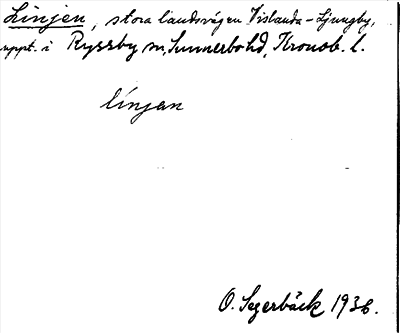 Linjen, stora landsvägen Vislanda-Ljungby,
uppt. i Ryssby sn, Sunnerbo hd, Kronob. l.
línjan
O. Segerbäck 1936.